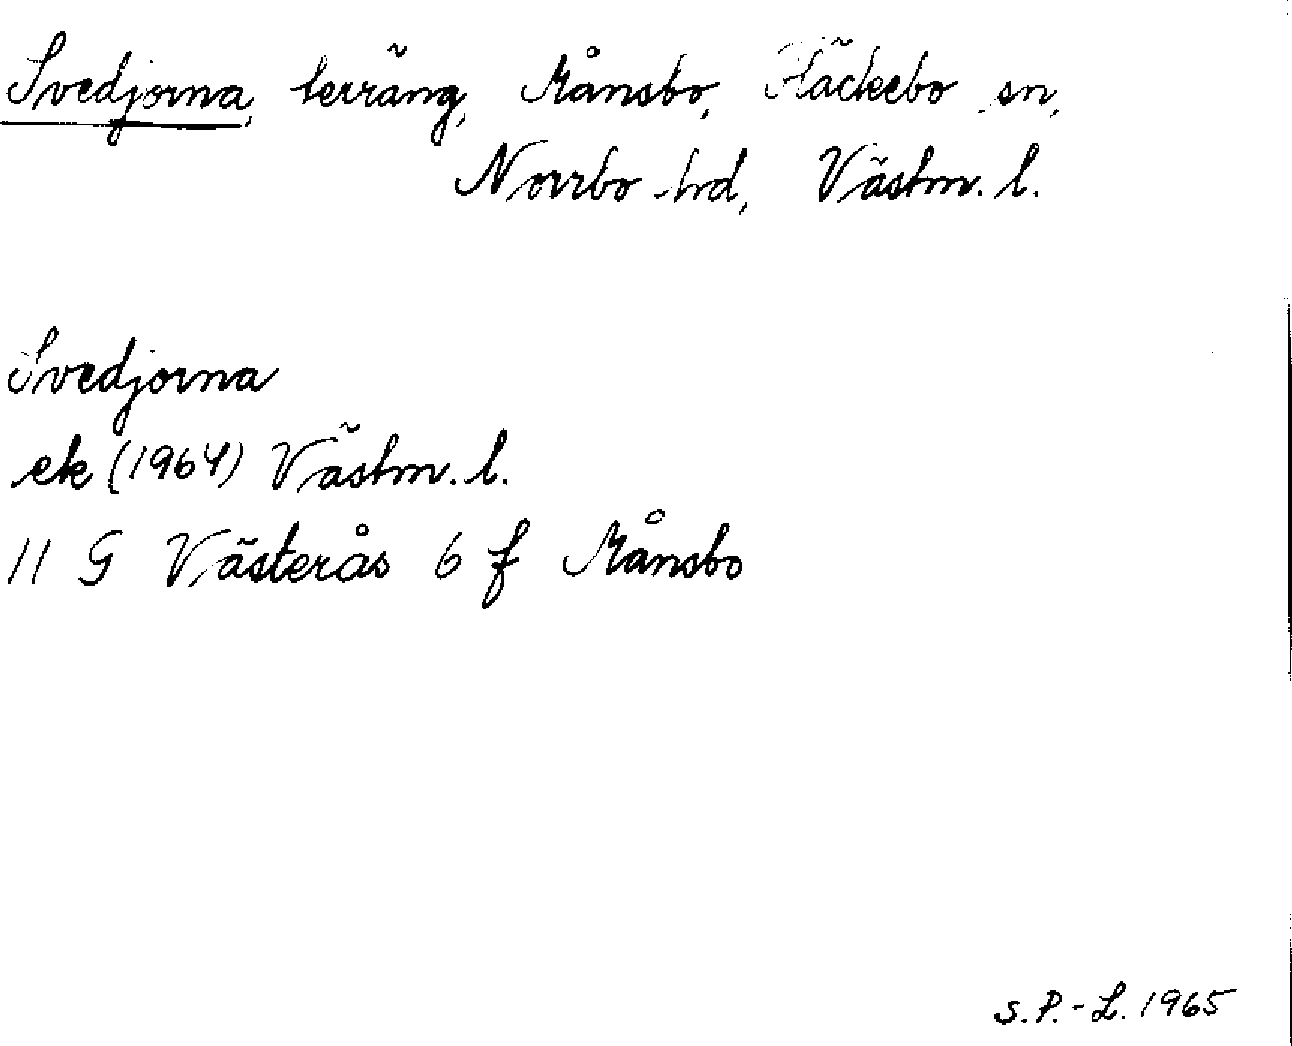 Svedjorna, terräng, Månsbo, Häckebo sn,
Norrbo hd, Västm. l.
Svedjorna
ek (1964) Västm. l.
11 G Västerås 6 f Månsbo
S.P.-L. 1965